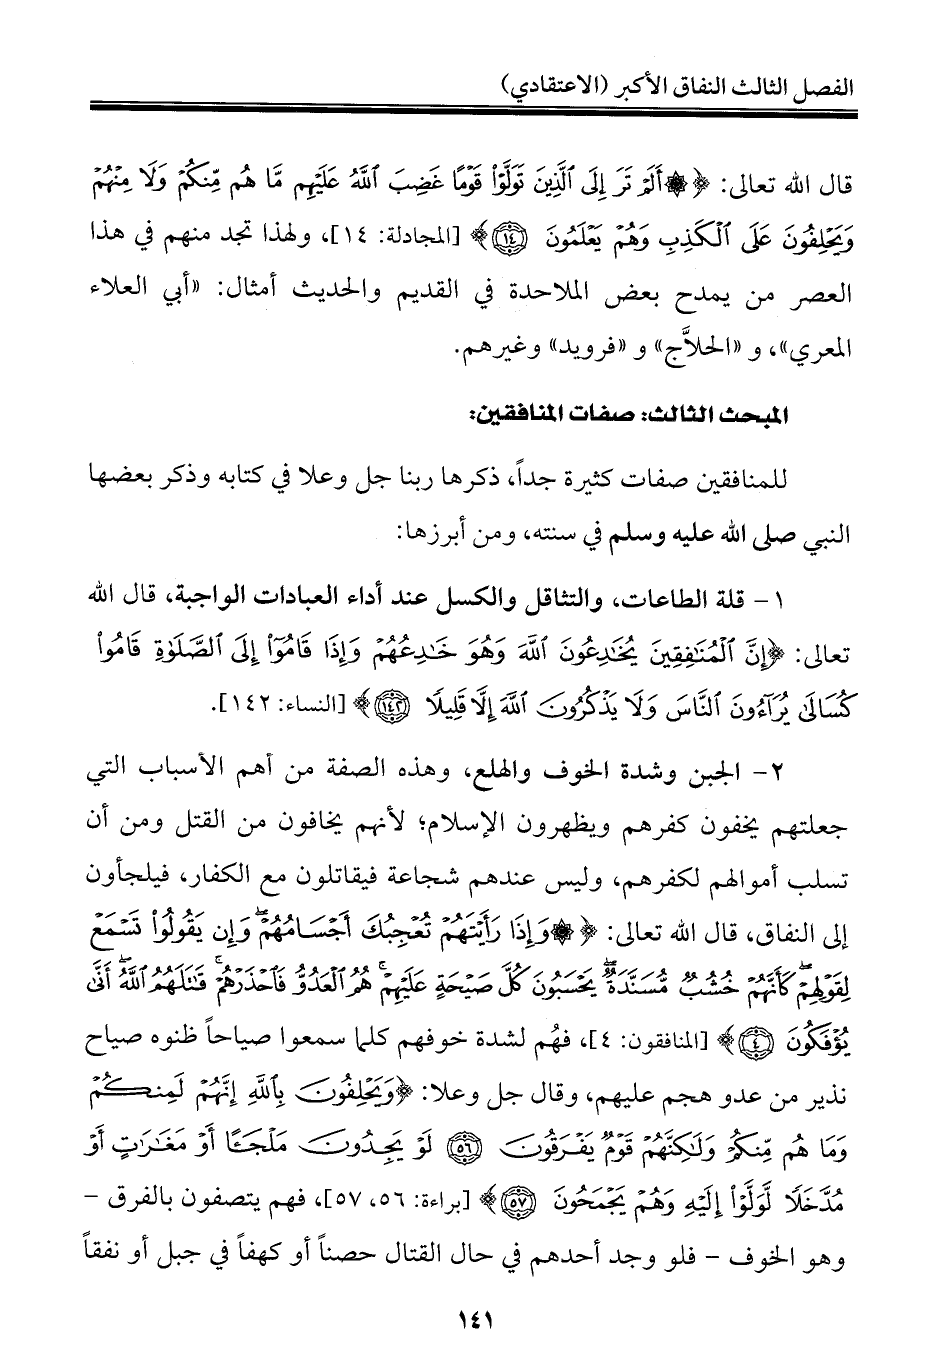 الفصل الثالث النفاق الأكبر (الاعتقادي)
قال الله تعالى: ﴿۞أَلَمْ تَرَ إِلَى ٱلَّذِينَ تَوَلَّوْاْ قَوْمًا غَضِبَ ٱللَّهُ عَلَيْهِم مَّا هُم مِّنكُمْ وَلَا مِنْهُمْ
وَيَحْلِفُونَ عَلَى ٱلْكَذِبِ وَهُمْ يَعْلَمُونَ ۝١٤﴾ [المجادلة: ١٤]، ولهذا تجد منهم في هذا
العصر من يمدح بعض الملاحدة في القديم والحديث أمثال: «أبي العلاء
المعري»، و «الحلاَّج» و «فرويد» وغيرهم.
المبحث الثالث: صفات المنافقين:
للمنافقين صفات كثيرة جداً، ذكرها ربنا جل وعلا في كتابه وذكر بعضها
النبي صلى الله عليه وسلم في سنته، ومن أبرزها:
١- قلة الطاعات، والتثاقل والكسل عند أداء العبادات الواجبة، قال الله
تعالى: ﴿إِنَّ ٱلْمُنَٰفِقِينَ يُخَٰدِعُونَ ٱللَّهَ وَهُوَ خَٰدِعُهُمْ وَإِذَا قَامُوٓاْ إِلَى ٱلصَّلَوٰةِ قَامُواْ
كُسَالَىٰ يُرَآءُونَ ٱلنَّاسَ وَلَا يَذْكُرُونَ ٱللَّهَ إِلَّا قَلِيلًا ۝١٤٢﴾ [النساء: ١٤٢].
٢- الجبن وشدة الخوف والهلع، وهذه الصفة من أهم الأسباب التي
جعلتهم يخفون كفرهم ويظهرون الإسلام؛ لأنهم يخافون من القتل ومن أن
تسلب أموالهم لكفرهم، وليس عندهم شجاعة فيقاتلون مع الكفار، فيلجأون
إلى النفاق، قال الله تعالى: ﴿۞وَإِذَا رَأَيْتَهُمْ تُعْجِبُكَ أَجْسَامُهُمْ ۖ وَإِن يَقُولُواْ تَسْمَعْ
لِقَوْلِهِمْ ۖ كَأَنَّهُمْ خُشُبٌ مُّسَنَّدَةٌ ۖ يَحْسَبُونَ كُلَّ صَيْحَةٍ عَلَيْهِمْ ۚ هُمُ ٱلْعَدُوُّ فَٱحْذَرْهُمْ ۚ قَٰتَلَهُمُ ٱللَّهُ ۖ أَنَّىٰ
يُؤْفَكُونَ ۝٤﴾ [المنافقون: ٤]، فهُم لشدة خوفهم كلما سمعوا صياحاً ظنوه صياح
نذير من عدو هجم عليهم، وقال جل وعلا: ﴿وَيَحْلِفُونَ بِٱللَّهِ إِنَّهُمْ لَمِنكُمْ
وَمَا هُم مِّنكُمْ وَلَٰكِنَّهُمْ قَوْمٌ يَفْرَقُونَ ۝٥٦ لَوْ يَجِدُونَ مَلْجَـًٔا أَوْ مَغَٰرَٰتٍ أَوْ
مُدَّخَلًا لَّوَلَّوْاْ إِلَيْهِ وَهُمْ يَجْمَحُونَ ۝٥٧﴾ [براءة: ٥٦، ٥٧]، فهم يتصفون بالفرق –
وهو الخوف – فلو وجد أحدهم في حال القتال حصناً أو كهفاً في جبل أو نفقاً
١٤١